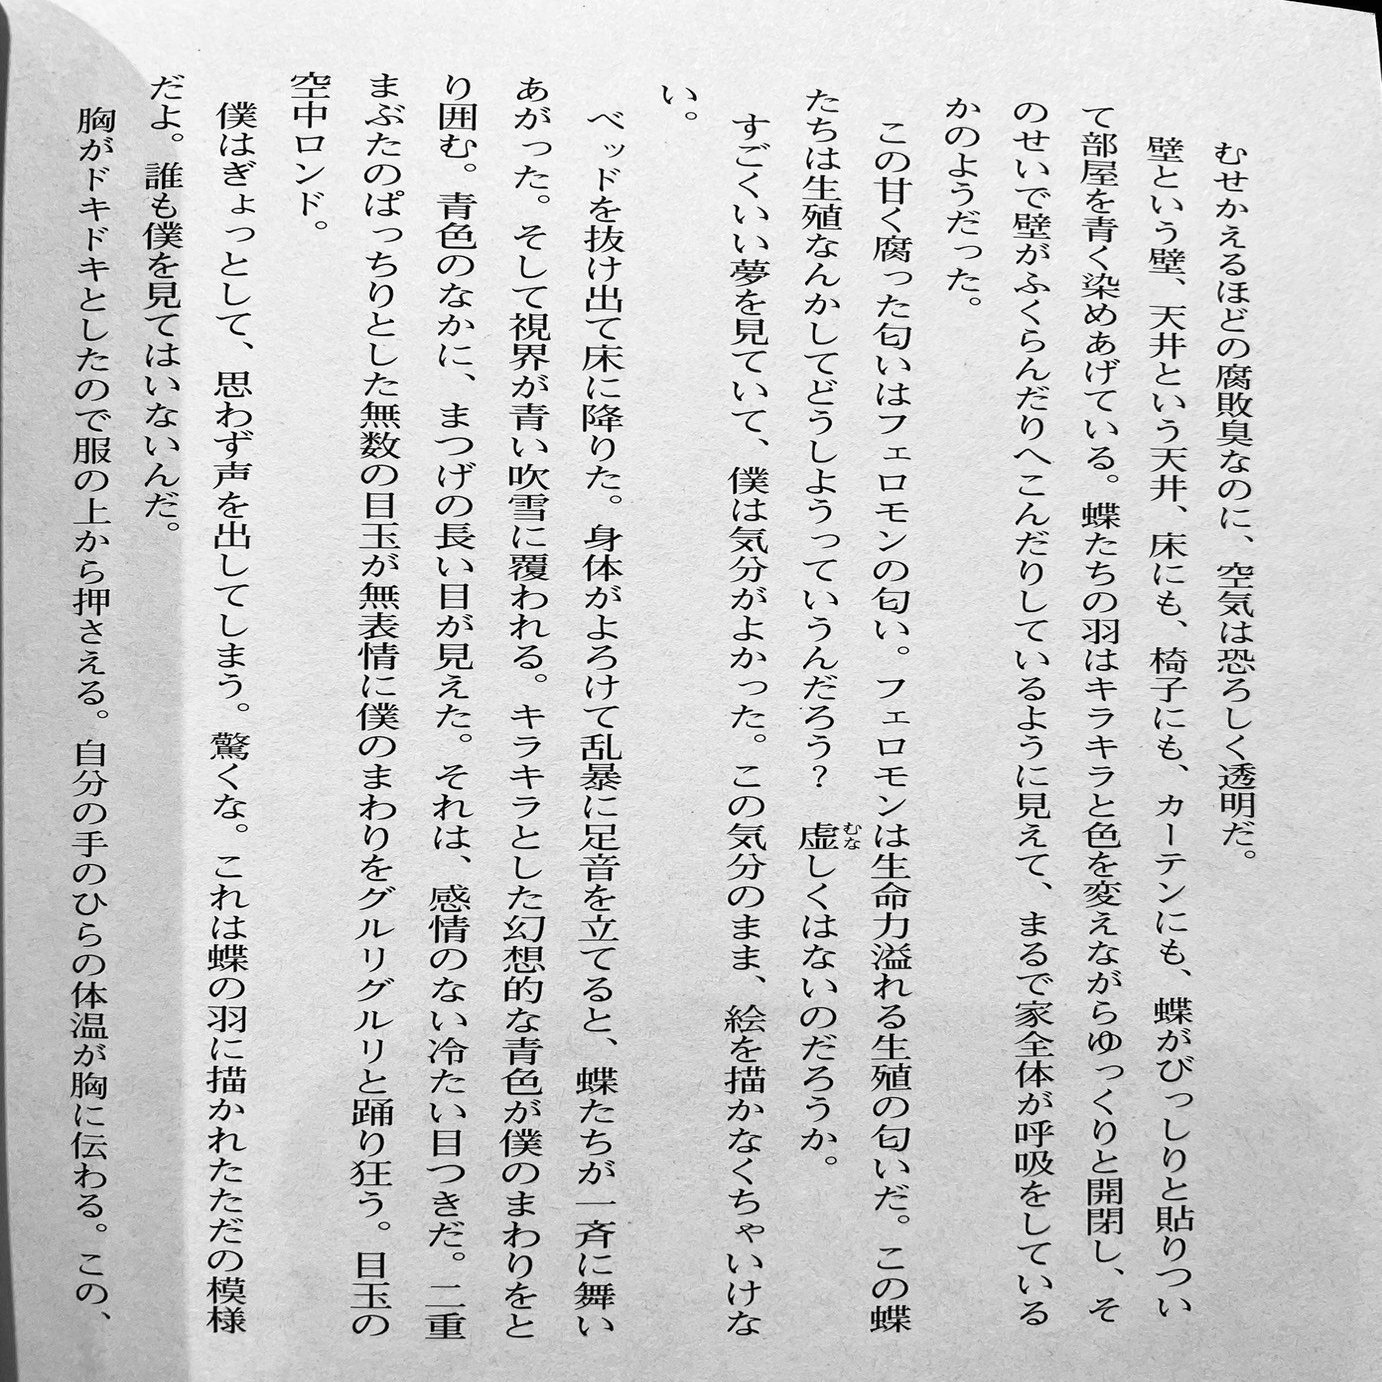 むせかえるほどの腐敗臭なのに、空気は恐ろしく透明だ。
壁という壁、天井という天井、床にも、椅子にも、カーテンにも、蝶がびっしりと貼りつい
て部屋を青く染めあげている。蝶たちの羽はキラキラと色を変えながらゆっくりと開閉し、そ
のせいで壁がふくらんだりへこんだりしているように見えて、まるで家全体が呼吸をしている
かのようだった。
この甘く腐った匂いはフェロモンの匂い。フェロモンは生命力溢れる生殖の匂いだ。この蝶
たちは生殖なんかしてどうしようっていうんだろう？　虚しくはないのだろうか。
むな
すごくいい夢を見ていて、僕は気分がよかった。この気分のまま、絵を描かなくちゃいけな
い。
ベッドを抜け出て床に降りた。身体がよろけて乱暴に足音を立てると、蝶たちが一斉に舞い
あがった。そして視界が青い吹雪に覆われる。キラキラとした幻想的な青色が僕のまわりをと
り囲む。青色のなかに、まつげの長い目が見えた。それは、感情のない冷たい目つきだ。二重
まぶたのぱっちりとした無数の目玉が無表情に僕のまわりをグルリグルリと踊り狂う。目玉の
空中ロンド。
僕はぎょっとして、思わず声を出してしまう。驚くな。これは蝶の羽に描かれたただの模様
だよ。誰も僕を見てはいないんだ。
胸がドキドキとしたので服の上から押さえる。自分の手のひらの体温が胸に伝わる。この、